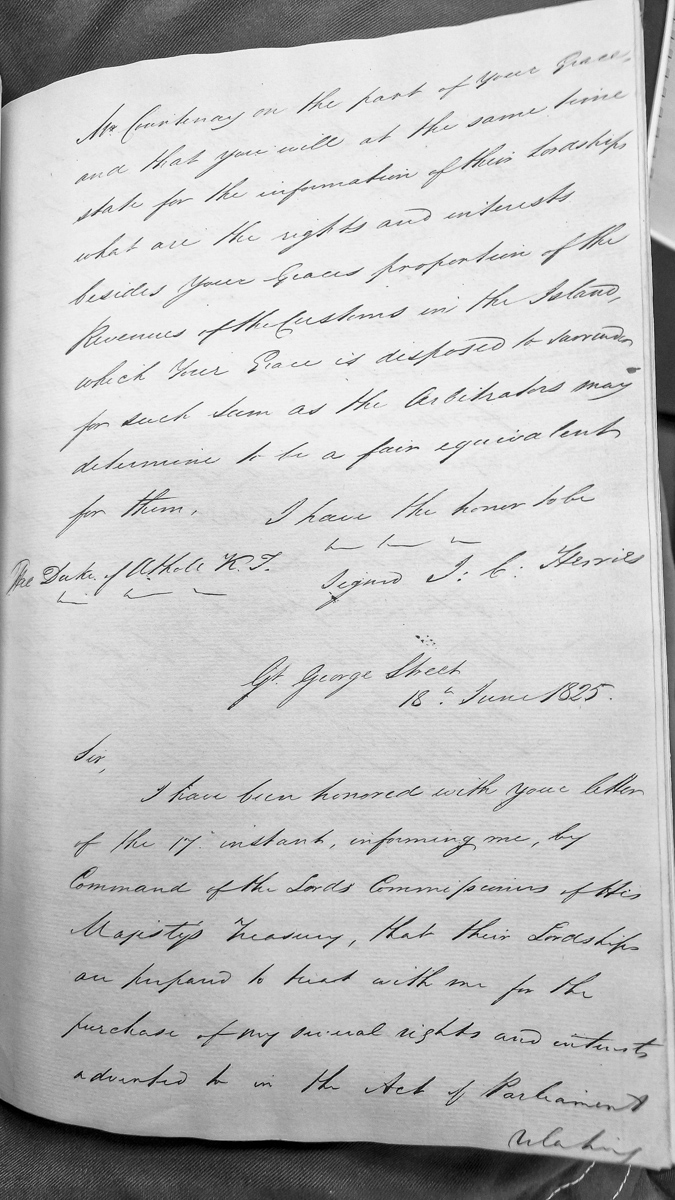 Mr. Courtenay on the part of Your Grace,
and that you will at the same time
state for the information of their Lordships
what are the rights and interests
besides Your Graces proportion of the
Revenues of the Customs in the Island,
which Your Grace is disposed to surrender
for such Sum as the Arbitrators may
determine to be a fair equivalent
for them. I have the honor to be
The Duke of Atholl K.T. Signed J: C: Herries
Gt. George Street
18th June 1825.
Sir,
I have been honored with your letter
of the 17 instant, informing me, by
Command of the Lords Commissioners of His
Majesty's Treasury, that their Lordships
are prepared to treat with me for the
purchase of my several rights and interests
adverted to in the Act of Parliament
relating